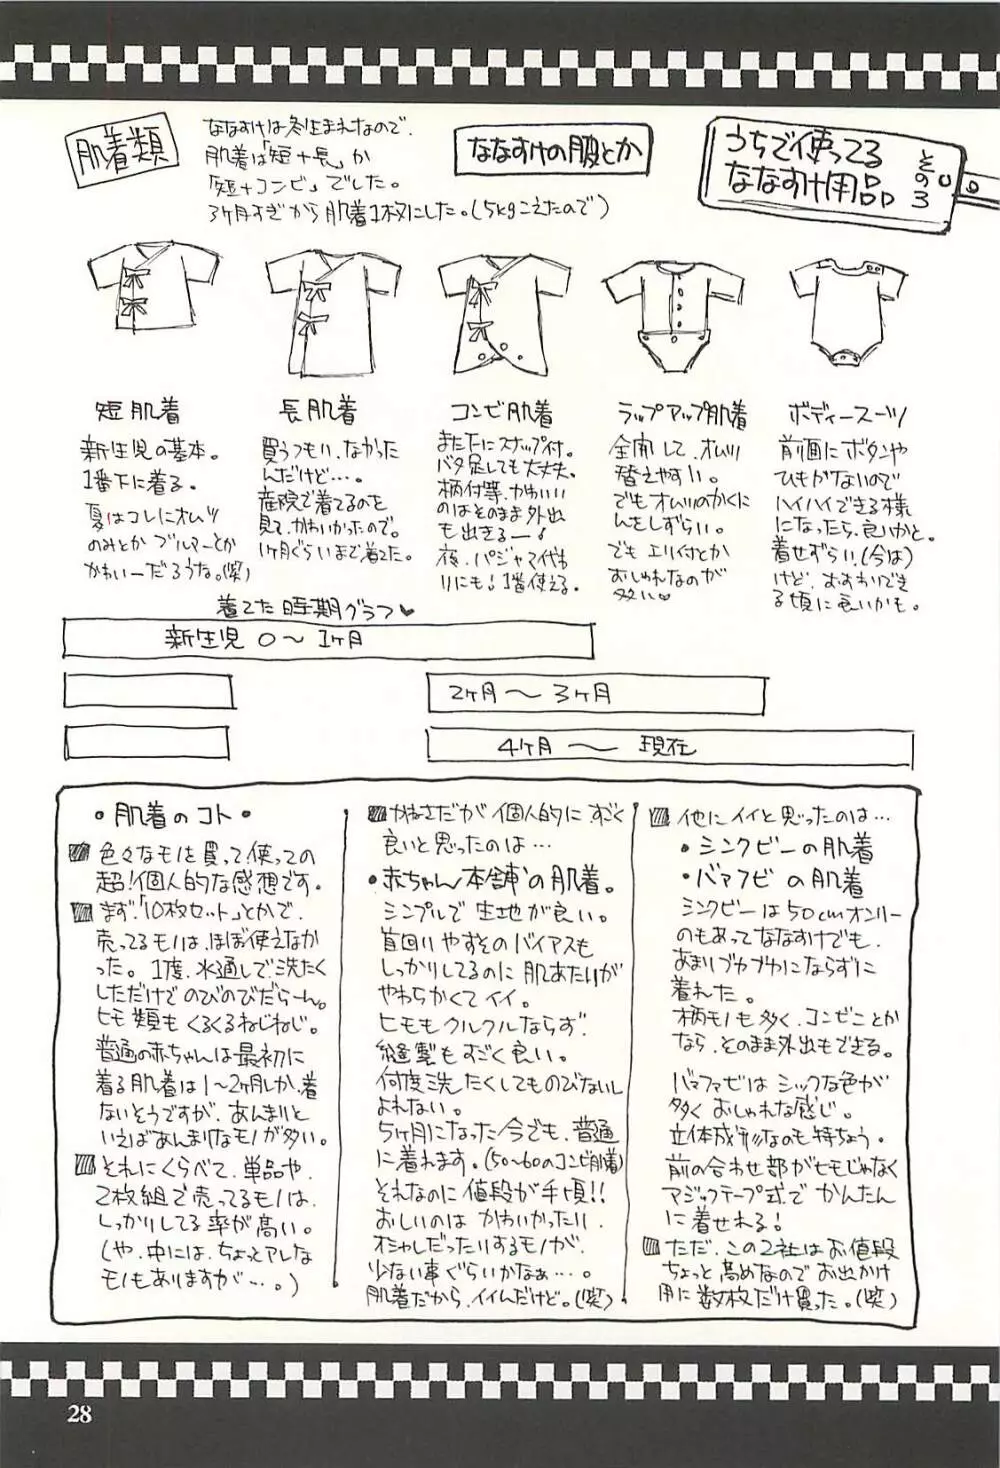 うちで使ってる
ななすけ用品
その3
ななすけの服とか
肌着類
ななすけは冬生まれなので、
肌着は「短＋長」か
「短＋コンビ」でした。
3ヶ月すぎから肌着1枚にした。(5kgこえたので)
短肌着
新生児の基本。
1番下に着る。
夏はコレにオムツ
のみとか ブルマーとか
かわいーだろうな。(笑)
長肌着
買うつもり、なかった
んだけど…。
産院で着てるのを
見て、かわいかったので。
1ヶ月ぐらいまで着てた。
コンビ肌着
また下にスナップ付。
バタ足しても大丈夫。
柄付等、かわいい
のはそのまま外出
も出きるー！
夜、パジャマ代わ
りにも！1番使える。
ラップアップ肌着
全開して、オムツ
替えやすい。
でもオムツのかくに
んをしずらい。
でも エリ付とか
おしゃれなのが
多い♥
ボディースーツ
前面にボタンや
ひもがないので
ハイハイできる様
になったら、良いかと。
着せずらい、(今は)
けど、おすわりでき
る頃に良いかも。
着てた時期グラフ♥
新生児 0〜1ヶ月
2ヶ月〜3ヶ月
4ヶ月〜 現在
・肌着のコト・
色々なモノを買って使っての
超！個人的な感想です。
まず、「10枚セット」とかで、
売ってるモノは、ほぼ使えなか
った。1度、水通しで洗たく
しただけでのびのびだらーん。
ヒモ類もくるくるねじねじ。
普通の赤ちゃんは最初に
着る肌着は1〜2ヶ月しか、着
ないそうですが、あんまりと
いえばあんまりなモノが多い。
それにくらべて、単品や、
2枚組で売ってるモノは、
しっかりしてる率が高い。
(や、中には、ちょっとアレな
モノもありますが…。)
かねさだが個人的に、すごく
良いと思ったのは…
・赤ちゃん本舗の肌着。
シンプルで生地が良い。
首回りやすそのバイアスも
しっかりしてるのに肌あたりが
やわらかくてイイ。
ヒモもクルクルならず、
縫製もすごく良い。
何度洗たくしてものびないし
よれない。
5ヶ月になった今でも、普通
に着れます。(50〜60のコンビ肌着)
それなのに値段が手頃!!
おしいのは かわいかったり、
オシャレだったりするモノが、
少ない事ぐらいかなぁ…。
肌着だから、イイんだけど。(笑)
他にイイと思ったのは…
・シンクビーの肌着
・バァフビの肌着
シンクビーは50cmオンリー
のもあってななすけでも、
あまりブカブカにならずに
着れた。
柄モノも多く、コンビことか
なら、そのまま外出もできる。
バァファビは シックな色が
多く おしゃれな感じ。
立体成形なのも特ちょう。
前の合わせ部がヒモじゃなく
マジックテープ式で かんたん
に着せれる！
ただ、この2社は お値段
ちょっと高めなので お出かけ
用に数枚だけ買った。(笑)
28